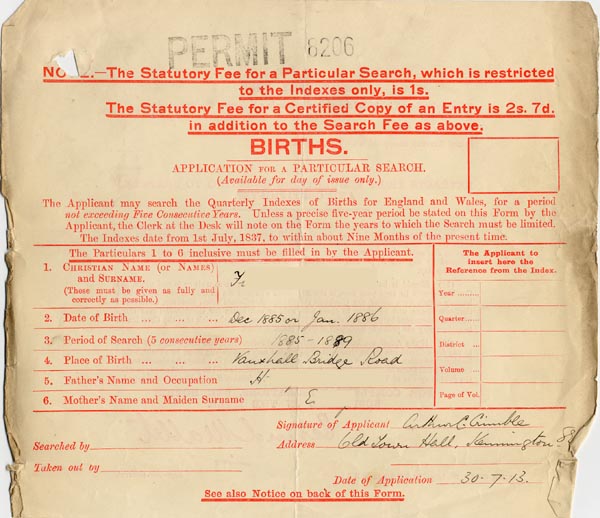 PERMIT 6206
NOTE.—The Statutory Fee for a Particular Search, which is restricted
to the Indexes only, is 1s.
The Statutory Fee for a Certified Copy of an Entry is 2s. 7d.
in addition to the Search Fee as above.
BIRTHS.
APPLICATION FOR A PARTICULAR SEARCH.
(Available for day of issue only.)
The Applicant may search the Quarterly Indexes of Births for England and Wales, for a period
not exceeding Five Consecutive Years. Unless a precise five-year period be stated on this Form by the
Applicant, the Clerk at the Desk will note on the Form the years to which the Search must be limited.
The Indexes date from 1st July, 1837, to within about Nine Months of the present time.
The Particulars 1 to 6 inclusive must be filled in by the Applicant.
1. CHRISTIAN NAME (OR NAMES)
and SURNAME.
(Those must be given as fully and
correctly as possible.)
Fr
2. Date of Birth ... ... ... Dec 1885 or Jan. 1886
3. Period of Search (5 consecutive years) 1885-1889
4. Place of Birth ... ... ... Vauxhall Bridge Road
5. Father's Name and Occupation H
6. Mother's Name and Maiden Surname E
The Applicant to
insert here the
Reference from the Index.
Year
Quarter
District
Volume
Page of Vol.
Signature of Applicant Arthur C. Crumble
Searched by
Address Old Town Hall, Kennington
Taken out by
Date of Application 30-7-13.
See also Notice on back of this Form.